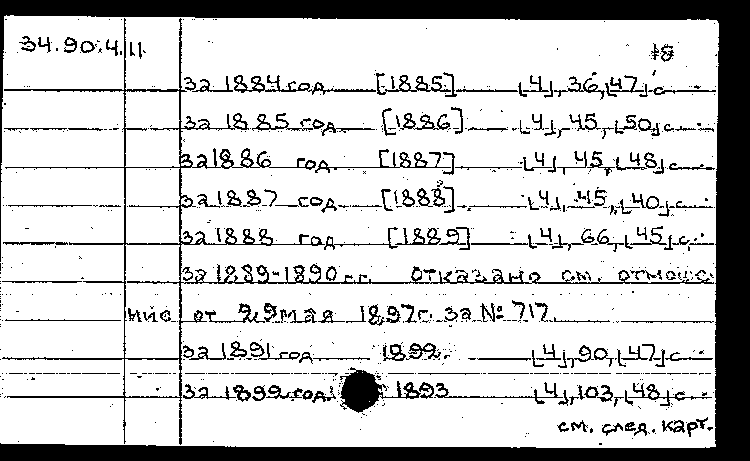 34.90.4.11
18
за 1884 год [1885] [4], 36, [47] с.
за 1885 год [1886] [4], 45, [50] с.
за 1886 год [1887] [4], 45, [48] с.
за 1887 год [1888] [4], 45, [40] с.
за 1888 год. [1889] [4], 66, [45] с.
за 1889-1890 гг. отказано см. отноше
ние от 29 мая 1897г. за № 717.
за 1891 год 1892. [4], 90, [47] с.
за 1892 год. 1893 [4], 103, [48] с.
см. след. карт.